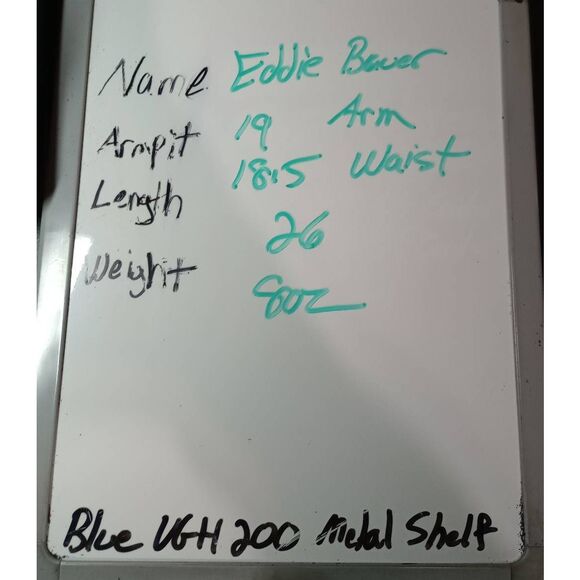 Name Eddie Bauer
Armpit 19 Arm
18.5 Waist
Length 26
Weight 8oz
Blue VGH 200 Metal Shelf